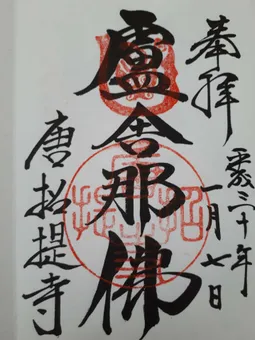 奉拝
平成三十年
一月七日
盧舎那佛
唐招提寺